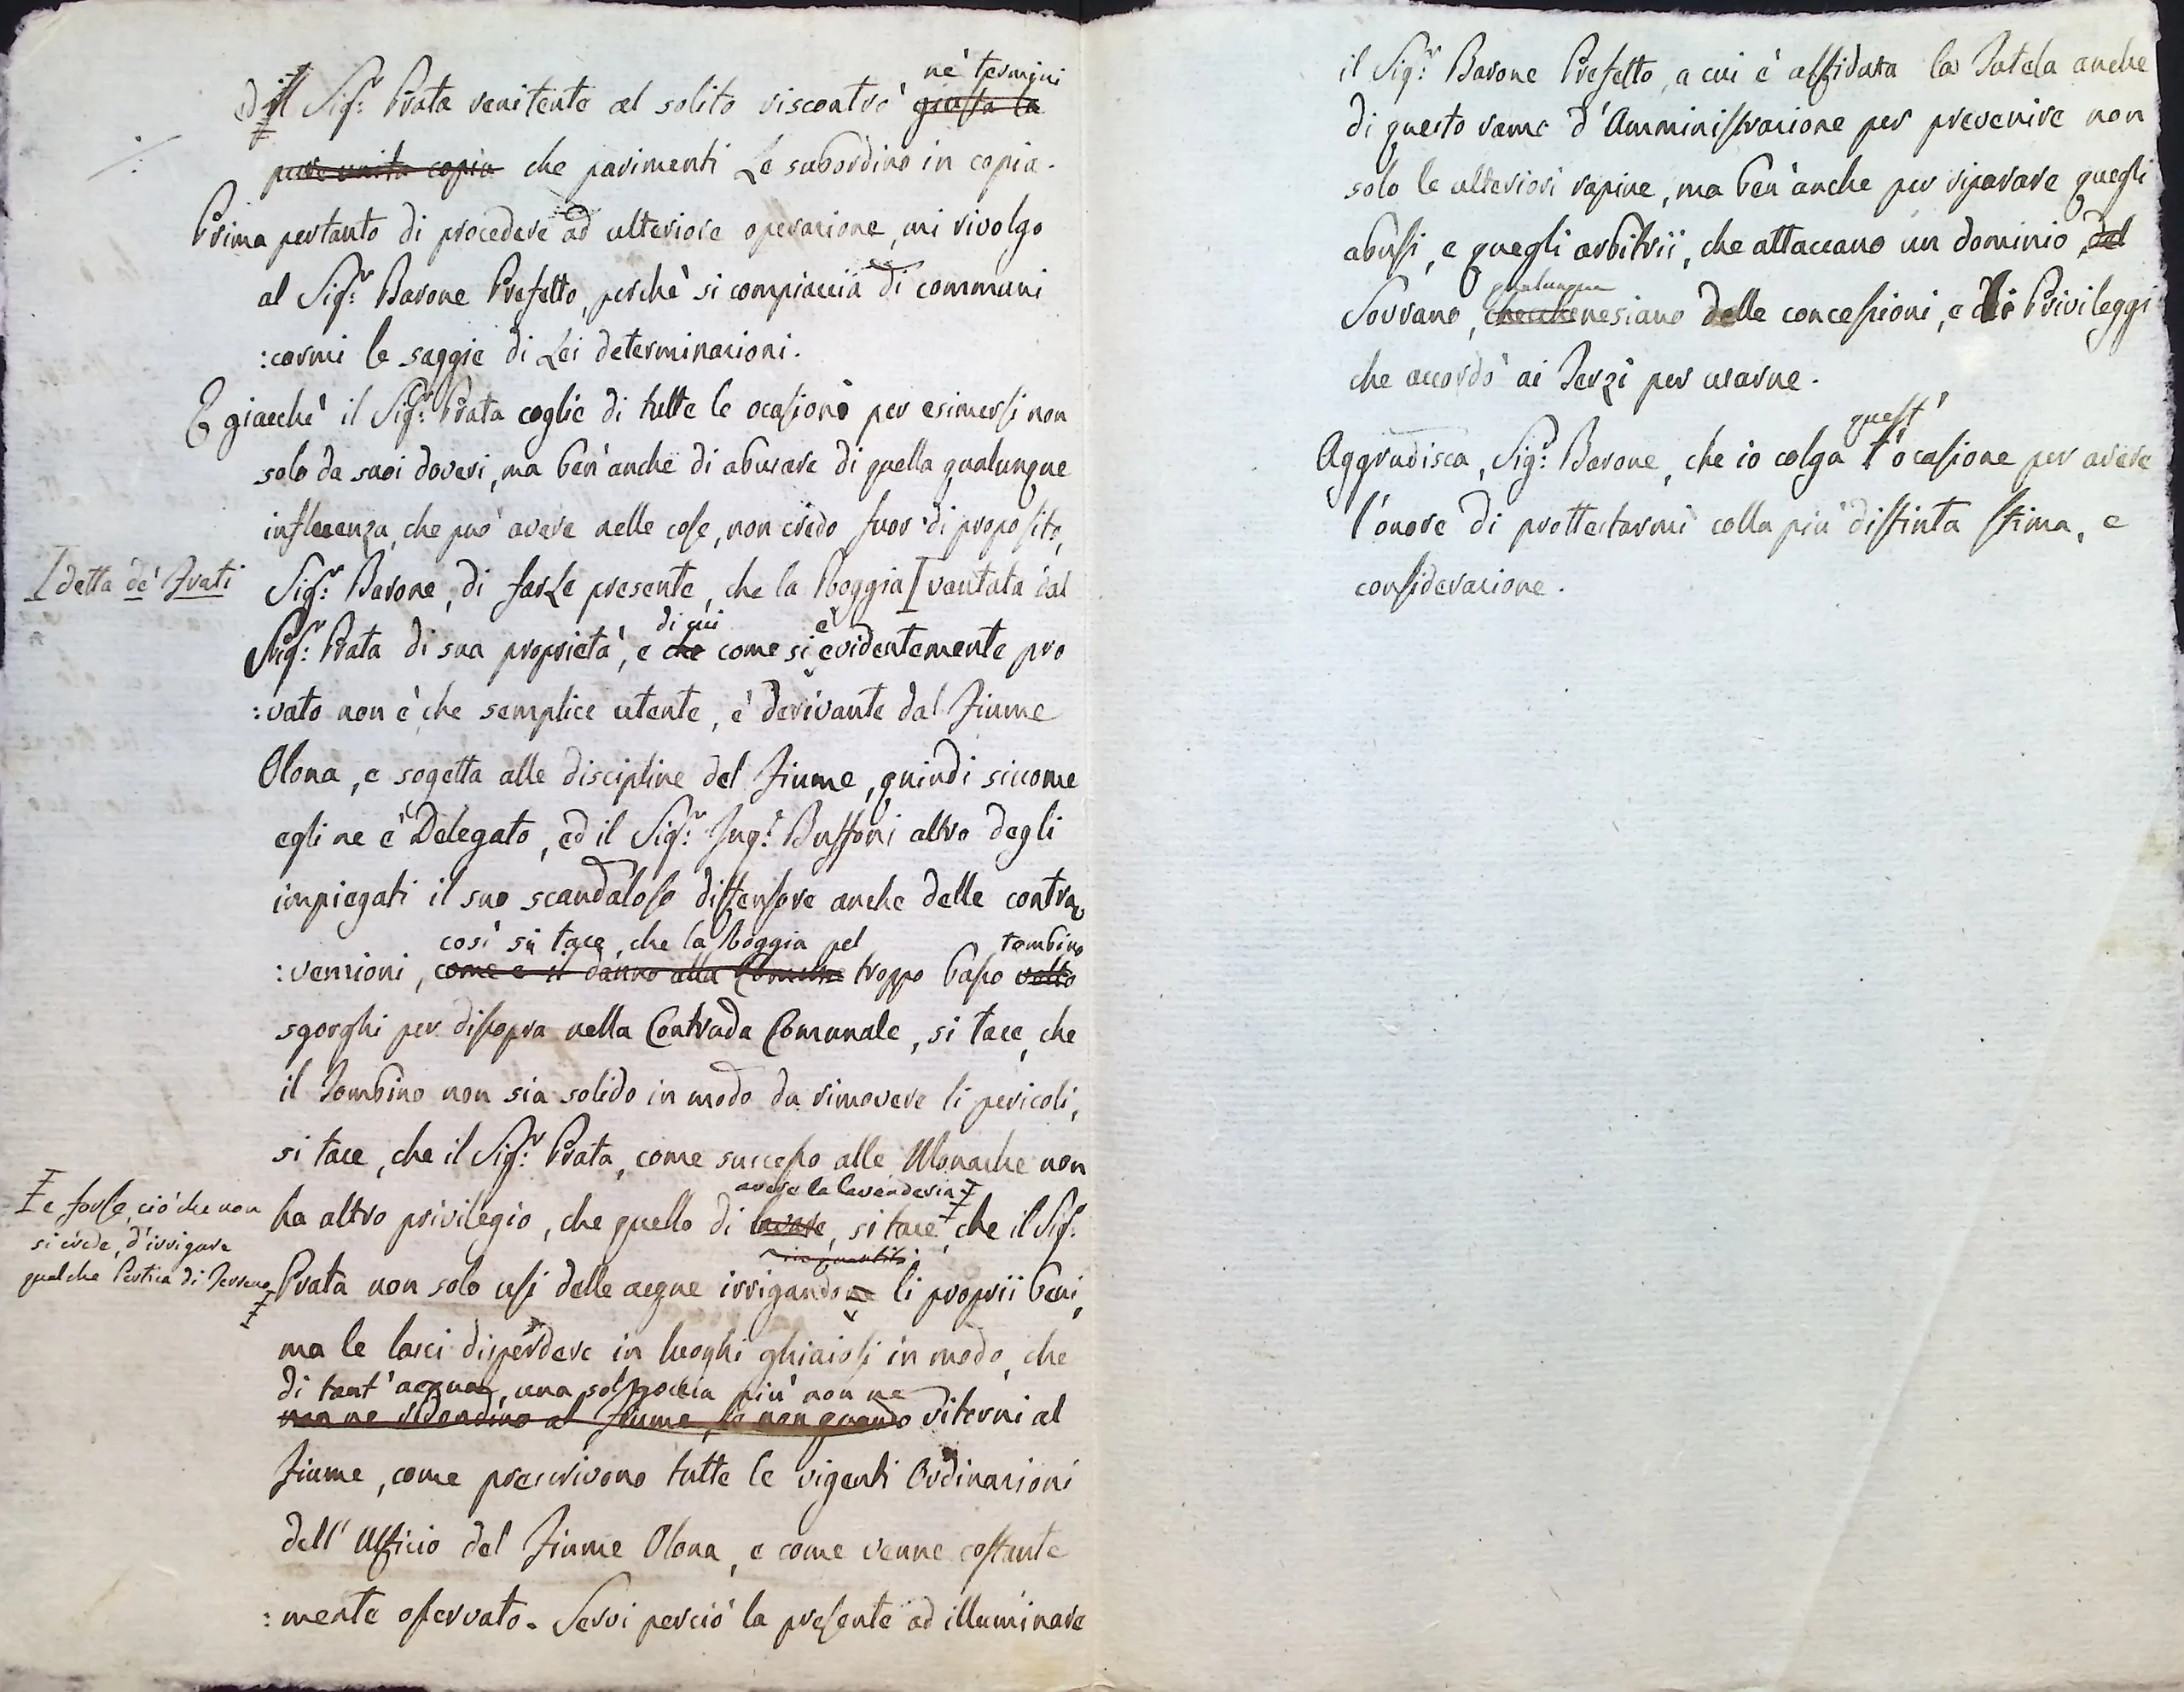 nè termini
ed il Sigr: Prata renitente al solito riscontrò giusta la
pure unita copia che parimenti Le subordino in copia.
Prima pertanto di procedere ad ulteriore operazione, mi rivolgo
al Sigr: Barone Prefetto, perchè si compiaccia di communi
:carmi le saggie di Lei determinazioni.
E giacchè il Sigr: Prata coglie di tutte le ocasioni per esimersi non
solo da suoi doveri, ma ben'anche di abusare di quella qualunque
influenza, che può avere nelle cose, non credo fuor di proposito,
detta de' Frati
Sigr: Barone, di farLe presente, che la Roggia vantata dal
di cui è
Sigr: Prata di sua proprietà, e che come si evidentemente pro
:vato non è che semplice utente, è derivante dal Fiume
Olona, e sogetta alle discipline del Fiume, quindi siccome
egli ne è Delegato, ed il Sigr: Ingr: Buffoni altro degli
impiegati il suo scandaloso diffensore anche delle contra
così si tace, che la Roggia pel tombino
:venzioni, come e il danno alla Comune troppo basso volto
sgorghi per disopra nella Contrada Comunale, si tace, che
il Tombino non sia solido in modo da rimovere li pericoli,
si tace, che il Sigr: Prata, come successo alle Monache non
avere la lavanderia
ha altro privilegio, che quello di lavare, si tace, che il Sigr:
e forse, ciò che non
si crede, d'irrigare
qualche Pertica di Terreno
Prata non solo usi delle acque irrigandone li proprii beni,
ma le lasci disperdere in luoghi ghiaiosi in modo, che
di tant'acqua, una sol goccia più non ne
non ne ridondino al Fiume, se non quando ritorni al
Fiume, come prescrivono tutte le vigenti Ordinazioni
dell'Ufficio del Fiume Olona, e come venne costante
:mente osservato. Servi perciò la presente ad illuminare
il Sigr: Barone Prefetto, a cui è affidata la Tutela anche
di questo rame d'Amministrazione per prevenire non
solo le ulteriori rapine, ma ben'anche per riparare quegli
abusi, e quegli arbitrii, che attaccano un dominio del
qualunque
Sovrano, checche ne siano delle concessioni, e dei Privileggi
che accordò ai Terzi per usarne.
quest'
Aggradisca, Sigr: Barone, che io colga l'ocasione per avere
l'onore di prottestarmi colla più distinta stima, e
considerazione.